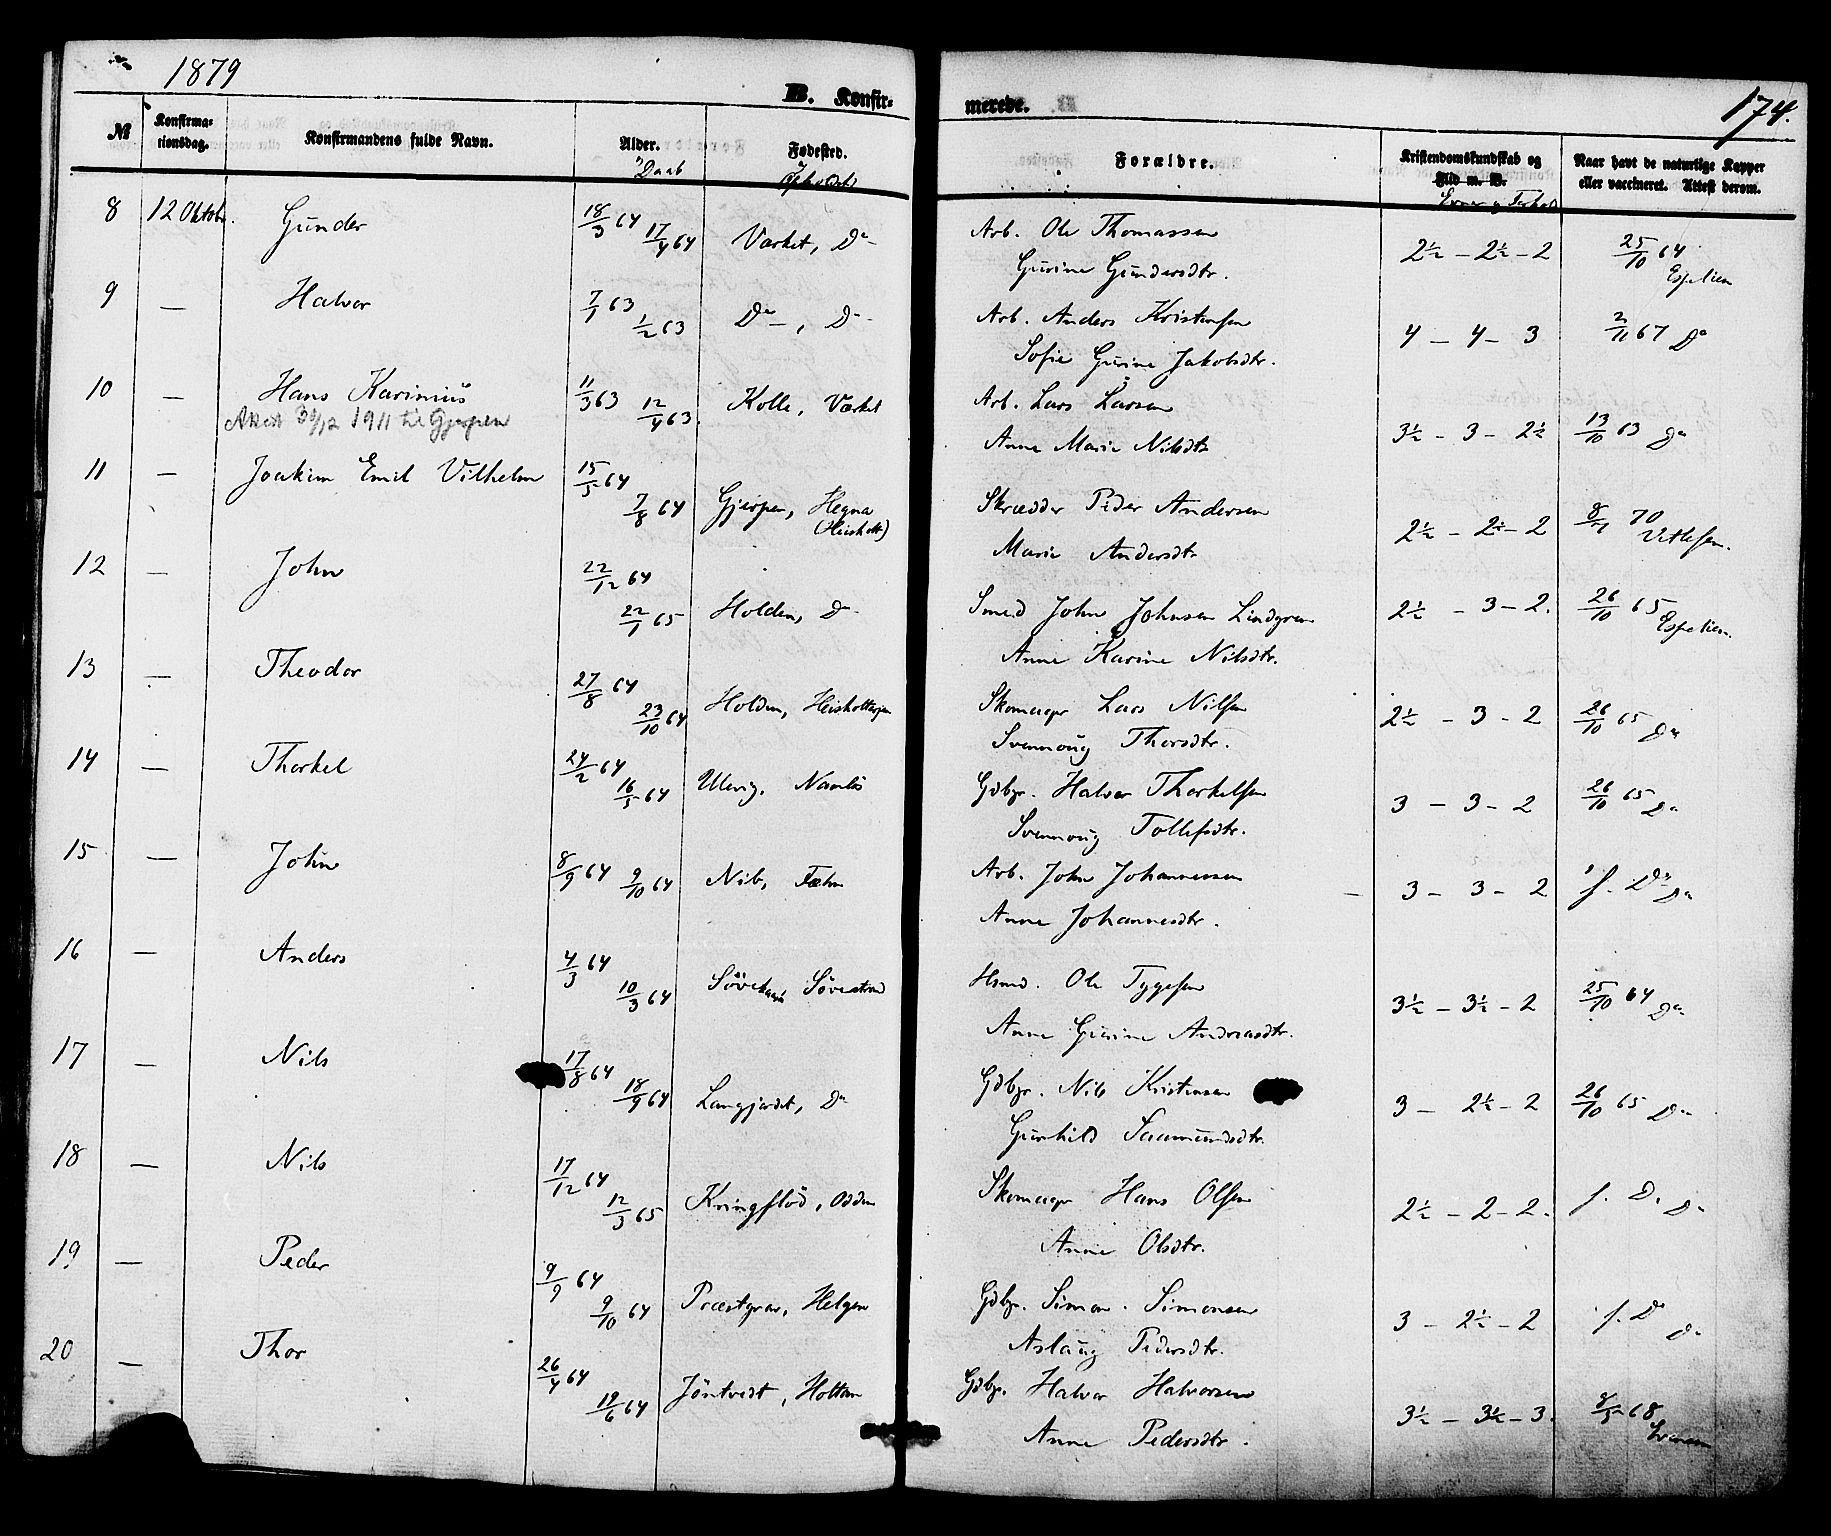 1879
B. Konfir-
merede.
174.
№ Konfirma-
tionsdag. Konfirmandens fulde Navn. Alder. Fødested. Forældre. Kristendomskundskab og
Flid m. V. Naar havt de naturlige Kopper
eller vaccineret. Attest derom.
Daab
8 12 Oktobr. Gunder 18/3 64 17/4 64 Værket, Do Arb. Ole Thomassen
Gurine Gundersdtr. 2½ – 2½ – 2 25/10 64 Espelien
9 — Halvor 7/1 63 1/2 63 Do, Do Arb. Anders Kristensen
Sofie Gurine Jakobsdtr. 4 – 4 – 3 2/11 67 Do
10 — Hans Karinius 11/3 63 12/4 63 Kolle, Værket Arb. Lars Larsen
30/12 1911 til Gjerpen
Anne Marie Nilsdtr 3½ – 3 – 2½ 13/10 63 Do
11 — Joakim Emil Vilhelm 15/5 64 7/8 64 Gjerpen, Hegna
(Heisholt) Skrædder Peder Andersen
Marie Andersdtr 2½ – 2½ – 2 70 Vetlesen.
12 — John 22/12 64 22/1 65 Holden, Do Smed John Johnsen Lindgren
Anne Karine Nilsdtr. 2½ – 3 – 2. 26/10 65 Espelien.
13 — Theodor 27/8 64 23/10 64 Holden, Skomager Lars Nilsen
Svennoug Thorsdtr. 2½ – 3 – 2 26/10 65 Do
14 — Thorkel 24/2 64 16/5 64 Ulevig, Namløs Gdbgr. Halvor Thorkelsen
Svennoug Tollefsdtr. 3 – 3 – 2 26/10 65 Do
15 — John 8/9 64 9/10 64 Nib, Arb. John Johannessen
Anne Johannesdtr. 3 – 3 – 2 f. Do Do
16 — Anders 4/3 64 10/3 64 Søvestrand Hsmd. Ole Tygesen
Anne Gurine Andreasdtr. 3½ – 3½ – 2 25/10 64 Do
17 — Nils 17/8 64 18/9 64 Langjordet, Do Gdbgr. Nils Kristensen
Gunhild Saamundsdtr. 3 – 2½ – 2 26/10 65 Do
18 — Nils 17/12 64 12/3 65 Kringflød, Odden Skomager Hans Olsen
Anne Olsdtr. 2½ – 2 – 2. f. D. Do
19 — Peder 9/9 64 9/10 64 Præstgrav, Helgen Gdbgr. Simon Simonsen
Aslaug Pedersdtr. 3 – 2½ – 2 f. Do Do
20 — Thor 26/4 64 19/6 64 Jøntvedt, Holtan Gdbgr. Halvor Halvorsen
Anne Pedersdtr. 3½ – 3½ – 3. 8/5 68